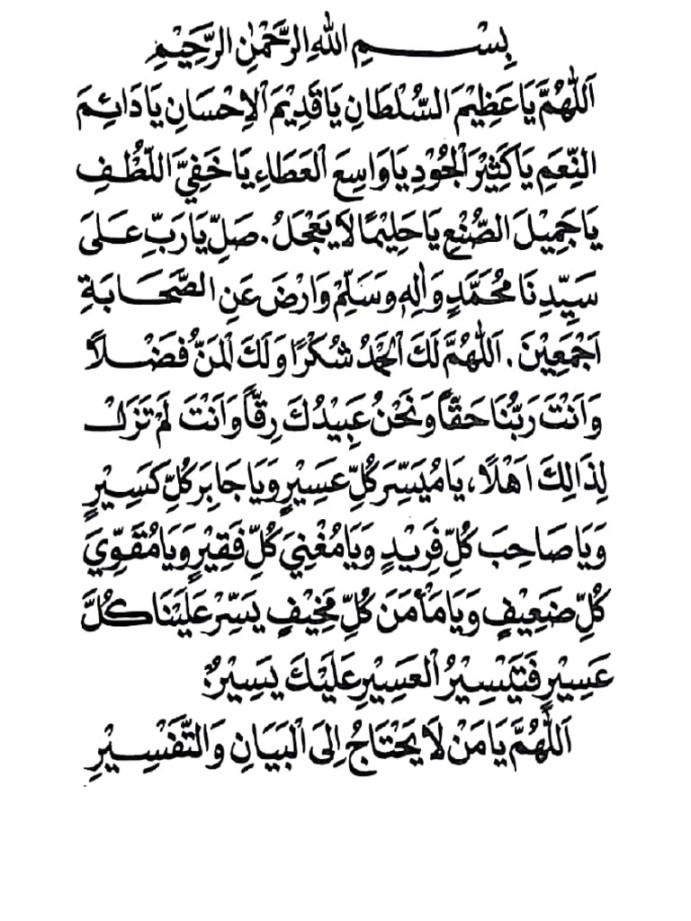 بِسْمِ اللهِ الرَّحْمٰنِ الرَّحِيْمِ
اَللّٰهُمَّ يَا عَظِيْمَ السُّلْطَانِ يَا قَدِيْمَ اْلاِحْسَانِ يَا دَائِمَ
النِّعَمِ يَا كَثِيْرَ الْجُوْدِ يَا وَاسِعَ الْعَطَاءِ يَا خَفِيَّ اللُّطْفِ
يَا جَمِيْلَ الصُّنْعِ يَا حَلِيْمًا لَا يَعْجَلُ. صَلِّ يَا رَبِّ عَلىَ
سَيِّدِنَا مُحَمَّدٍ وَاٰلِهِ وَسَلِّمْ وَارْضَ عَنِ الصَّحَابَةِ
اَجْمَعِيْنَ. اَللّٰهُمَّ لَكَ الْحَمْدُ شُكْرًا وَلَكَ الْمَنُّ فَضْلًا
وَاَنْتَ رَبُّنَا حَقًّا وَنَحْنُ عَبِيْدُكَ رِقًّا وَاَنْتَ لَمْ تَزَلْ
لِذَالِكَ اَهْلًا، يَا مُيَسِّرَ كُلِّ عَسِيْرٍ وَيَا جَابِرَ كُلِّ كَسِيْرٍ
وَيَا صَاحِبَ كُلِّ فَرِيْدٍ وَيَا مُغْنِيَ كُلِّ فَقِيْرٍ وَيَا مُقَوِّيَ
كُلِّ ضَعِيْفٍ وَيَا مَأْمَنَ كُلِّ مَخِيْفٍ يَسِّرْ عَلَيْنَا كُلَّ
عَسِيْرٍ فَتَيْسِيْرُ الْعَسِيْرِ عَلَيْكَ يَسِيْرٌ.
اَللّٰهُمَّ يَا مَنْ لَا يَحْتَاجُ اِلىَ الْبَيَانِ وَالتَّفْسِيْرِ